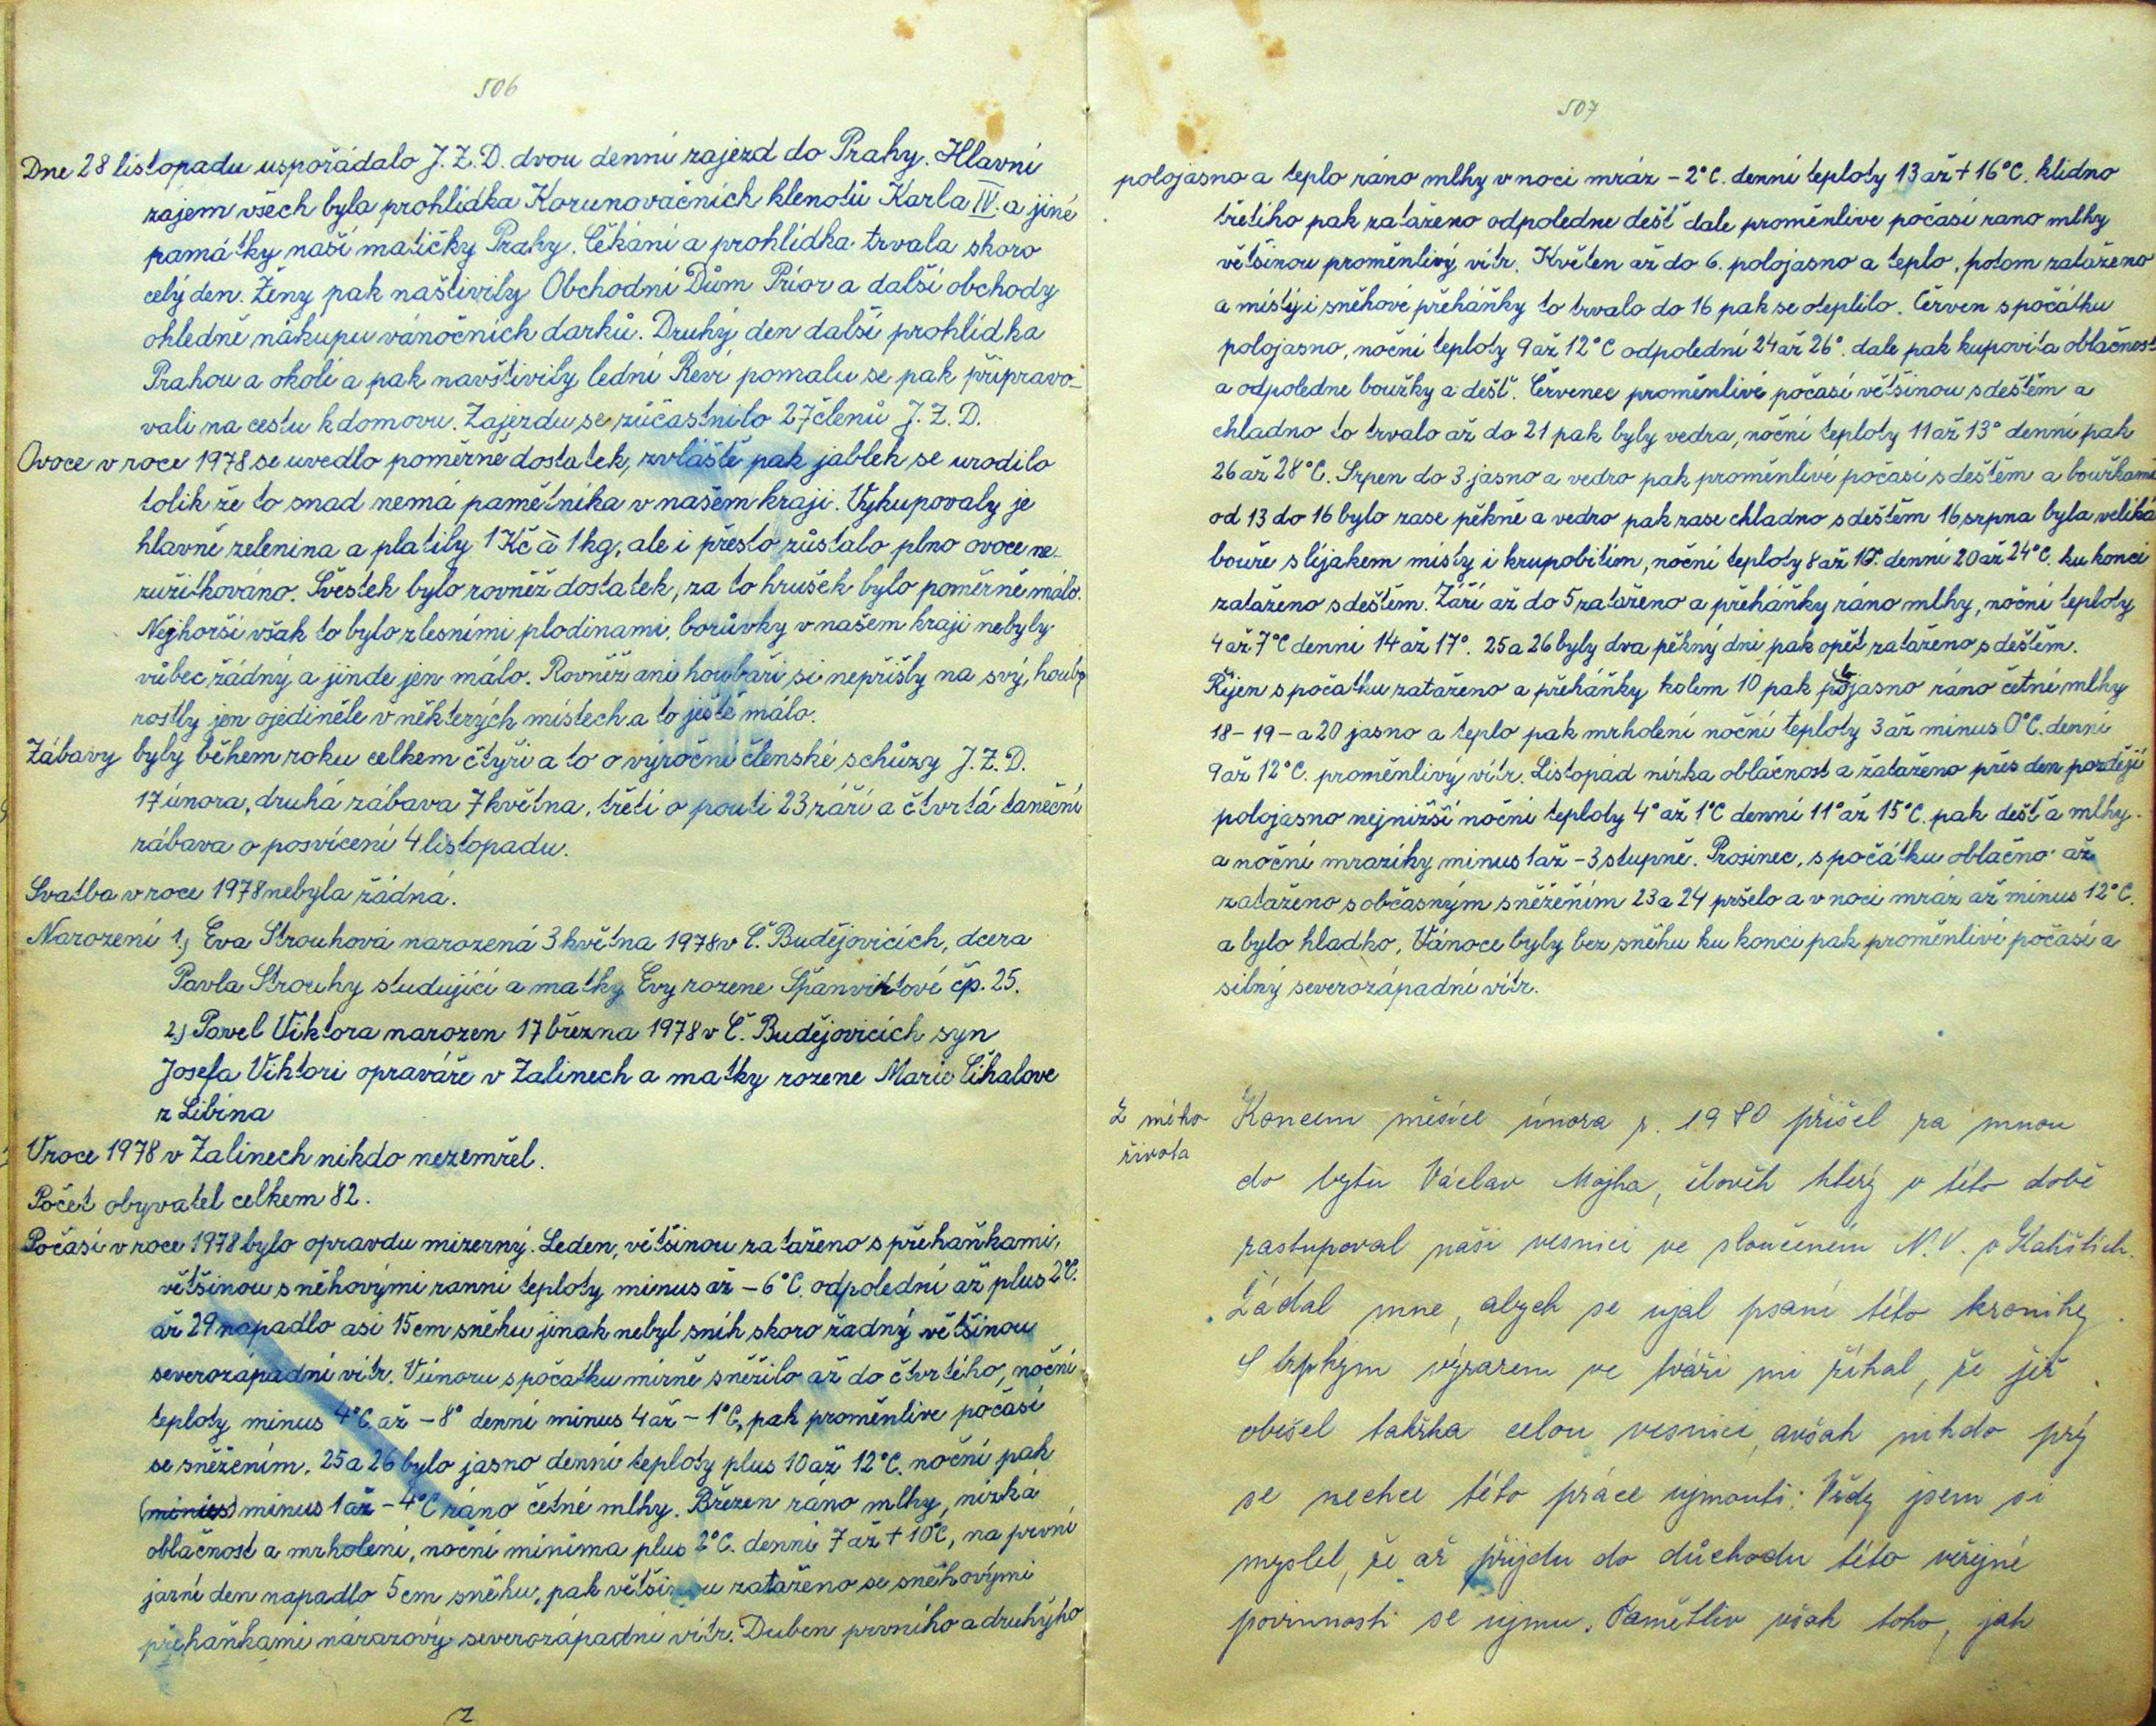 506
Dne 28 listopadu uspořádalo J.Z.D. dvou denní zajezd do Prahy. Hlavní
zajem všech byla prohlídka Korunovačních klenotů Karla IV. a jiné
památky naší matičky Prahy. Čékání a prohlídka trvala skoro
celý den. Ženy pak naštivily Obchodní Dům Prior a další obchody
ohledně nákupu vánočních darků. Druhý den další prohlídka
Prahou a okolí a pak navštivily lední Revi pomalu se pak připravo-
vali na cestu k domovu. Zajezdu se zůčastnilo 27 členů J.Z.D.
Ovoce v roce 1978 se uvedlo poměrně dostatek, zvláště pak jablek se urodilo
tolik že to snad nemá pamětníka v našem kraji. Vykupovaly je
hlavně zelenina a platily 1 Kč à 1 kg, ale i přesto zůstalo plno ovoce ne-
zužitkováno. Švestek bylo rovněž dostatek, za to hrušek bylo poměrně málo.
Nejhorší však to bylo z lesními plodinami, borůvky v našem kraji nebyly
vůbec žádný a jinde jen málo. Rovněž ani houbaři si nepřišly na svý, houby
rostly jen ojediněle v některých místech a to ještě málo.
Zábavy byly během roku celkem čtyři a to o výroční členské schůzy J.Z.D.
17 února, druhá zábava 7 května, třetí o pouti 23 září a čtvrtá taneční
zábava o posvícení 4 listopadu.
Svatba v roce 1978 nebyla žádná.
Narození 1.) Eva Strouhová narozená 3 května 1978 v Č. Budějovicích, dcera
Pavla Strouhy studující a matky Evy rozene Španvirtové čp. 25.
2.) Pavel Viktora narozen 17 března 1978 v Č. Budějovicích syn
Josefa Viktori opraváře v Zalinech a matky rozene Marie Číhalove
z Libína
V roce 1978 v Zalinech nikdo nezemřel.
Počet obyvatel celkem 82.
Počasí v roce 1978 bylo opravdu mizerný. Leden, většinou zataženo s přeháňkami,
většinou sněhovými ranní teploty minus až -6°C. odpolední až plus 2°C.
až 29 napadlo asi 15 cm sněhu jinak nebyl sníh skoro žadný většinou
severozápadní vítr. V únoru spočatku mírně sněžilo až do čtvrtého, noční
teploty minus 4°C. až -8° denní minus 4 až -1°C, pak proměnlive počasí
se sněžením. 25 a 26 bylo jasno denní teploty plus 10 až 12°C. noční pak
(minius) minus 1 až -4°C ráno četné mlhy. Březen ráno mlhy, nízká
oblačnost a mrholení, noční minima plus 2°C. denní 7 až + 10°C, na první
jarní den napadlo 5 cm sněhu, pak většinou zataženo se sněhovými
přeháňkami nárazový severozápadní vítr. Duben prvního a druhýho
507
polojasno a teplo ráno mlhy v noci mráz - 2°C. denní teploty 13 až + 16°C. klidno
třetího pak zataženo odpoledne dešť dale proměnlive počasí rano mlhy
většinou proměnlivý vítr. Květen až do 6. polojasno a teplo, potom zataženo
a místy i sněhové přeháňky to trvalo do 16 pak se oteplilo. Červen spočátku
polojasno, noční teploty 9 až 12°C odpolední 24 až 26°. dale pak kupovita oblačnost
a odpoledne bouřky a dešť. Červenec proměnlivé počasí většinou s deštěm a
chladno to trvalo až do 21 pak byly vedra, noční teploty 11 až 13° denní pak
26 až 28°C. Srpen do 3. jasno a vedro pak proměnlivé počasí s deštěm a bouřkami
od 13 do 16 bylo zase pěkně a vedro pak zase chladno s deštěm 16 srpna byla veliká
bouře s lijakem místy i krupobitím, noční teploty 8 až 10. denní 20 až 24°C. ku konci
zataženo s deštěm. Září až do 5 zataženo a přeháňky ráno mlhy, noční teploty
4 až 7°C denní 14 až 17°. 25 a 26 byly dva pěkný dni pak opět zataženo s deštěm.
Říjen spočatku zataženo a přeháňky kolem 10 pak polojasno ráno četní mlhy
18 - 19 - a 20 jasno a teplo pak mrholení noční teploty 3 až minus 0°C. denní
9 až 12°C. proměnlivý vítr. Listopad nízka oblačnost a zataženo přes den později
polojasno nejnižší noční teploty 4° až 1°C denní 11° až 15°C. pak dešť a mlhy.
a noční mrazíky minus 1 až - 3 stupně. Prosinec, spočátku oblačno až
zataženo s občasným sněžením 23 a 24 pršelo a v noci mráz až minus 12°C.
a bylo hladko, Vánoce byly bez sněhu ku konci pak proměnlivé počasí a
silný severozápadní vítr.
Z mého života
Koncem měsíce února r. 1980 přišel za mnou
do bytu Václav Mojha, člověk který v této době
zastupoval naši vesnici ve sloučeném N.V. v Kaližtích.
Žádal mne, abych se ujal psaní této kroniky.
S trpkým výrazem ve tváři mi říkal, že již
obešel takřka celou vesnici, avšak nikdo prý
se nechce této práce ujmouti. Vždy jsem si
myslel, že až přijdu do důchodu této veřejné
povinnosti se ujmu. Pamětliv však toho, jak